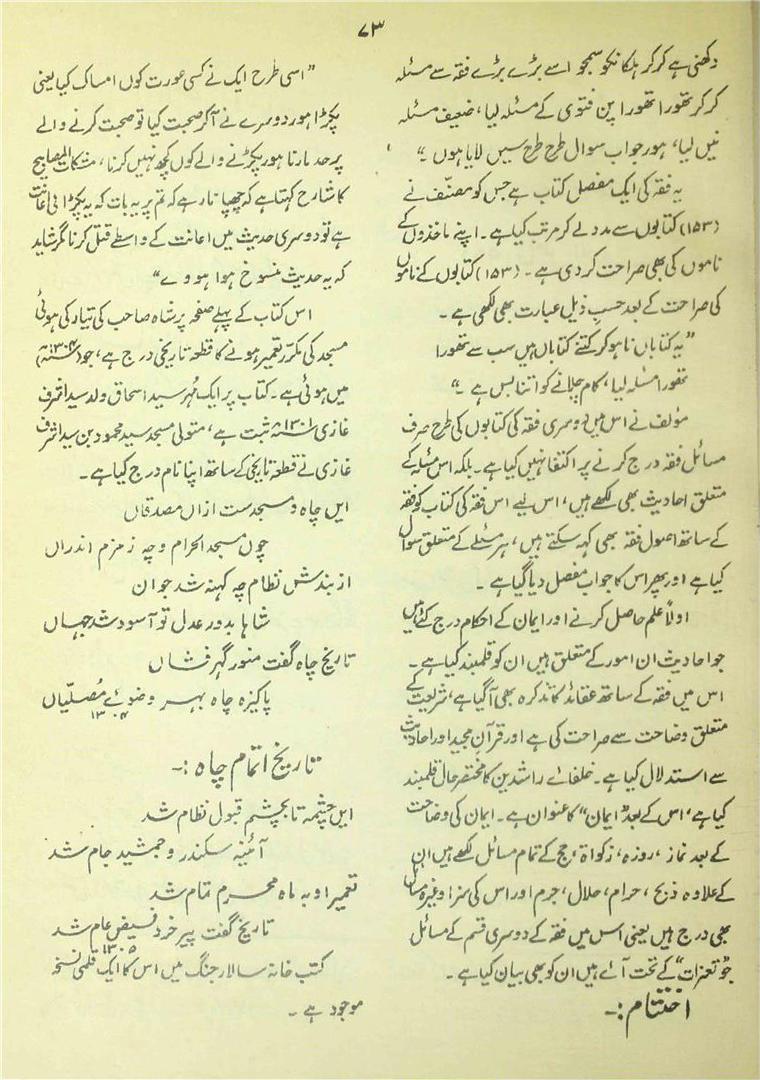 ۷۳
دکھنی ہے کرکر ہلکا نکو سمجو اسے بڑے بڑے فقہ سے مسئلہ
کر کر تھورا تھورا پن فتوی کے مسئلہ لیا، ضعیف مسئلہ
نیں لیا، ہور جواب سوال طرح طرح سیں لایا ہوں ۔“
یہ فقہ کی ایک مفصل کتاب ہے جس کو مصنف نے
(۱۵۳) کتابوں سے مدد لے کر مرتب کیا ہے۔ اپنے ماخذوں کے
ناموں کی بھی صراحت کر دی ہے ۔ (۱۵۳) کتابوں کے ناموں
کی صراحت کے بعد حسبِ ذیل عبارت بھی لکھی ہے ۔
”یہ کتاباں نا ہو کر کتنے کتاباں ہیں سب سے تھورا
تھورا مسئلہ لیا، کام چلانے کو اتنا بس ہے ۔“
مؤلف نے اس میں دوسری فقہ کی کتابوں کی طرح صرف
مسائل فقہ درج کرنے پر اکتفا نہیں کیا ہے۔ بلکہ اس مسئلہ کے
متعلق احادیث بھی لکھے ہیں، اس لیے اس فقہ کی کتاب کو فقہ
کے ساتھ اصول فقہ بھی کہہ سکتے ہیں، ہر مسئلے کے متعلق سوال
کیا ہے اور پھر اس کا جواب مفصل دیا گیا ہے ۔
اولاً علم حاصل کرنے اور ایمان کے احکام درج کئے ہیں
جو احادیث ان امور کے متعلق ہیں ان کو قلمبند کیا ہے۔
اس میں فقہ کے ساتھ عقائد کا تذکرہ بھی آگیا ہے، شریعت کے
متعلق وضاحت سے صراحت کی ہے اور قرآن مجید اور احادیث
سے استدلال کیا ہے۔ خلفائے راشدین کا مختصر حال قلمبند
کیا ہے، اس کے بعد ”ایمان“ کا عنوان ہے۔ ایمان کی وضاحت
کے بعد نماز، روزہ، زکواۃ، حج کے تمام مسائل لکھے ہیں ان
کے علاوہ ذبح، حرام، حلال، جرم اور اس کی سزا وغیرہ مسائل
بھی درج ہیں یعنی اس میں فقہ کے دوسری قسم کے مسائل
جو ”تعزرات“ کے تحت آئے ہیں ان کو بھی بیان کیا ہے ۔
اختتام :۔
”اسی طرح ایک نے کسی عورت کوں امساک کیا یعنی
پکڑا ہور دوسرے نے آکر صحبت کیا تو صحبت کرنے والے
پر حد مارنا ہور پکڑنے والے کوں کچھ نہیں کرنا، مشکات المصابیح
کا شارح کہتا ہے کہ چھپا نا رہے کہ تم پر یہ بات کہ یہ پکڑا نی اعانت
ہے تو دوسری حدیث میں اعانت کے واسطے قتل کرنا مگر شاید
کہ یہ حدیث منسوخ ہوا ہووے“
اس کتاب کے پہلے صفحہ پر شاہ صاحب کی تیار کی ہوئی
مسجد کی مکرر تعمیر ہونے کا قطعہ تاریخی درج ہے، جو (۱۳۰۴ھ)
میں ہوئی ہے۔ کتاب پر ایک مُہر سید اسحاق ولد سید اشرف
غازی ۱۳۰۱ھ ثبت ہے، متولی مسجد سید محمود بن سید اشرف
غازی نے قطعہ تاریخی کے ساتھ اپنا نام درج کیا ہے۔
ایں چاہ و مسجدست ازاں مصدقاں
چوں مسجد الحرام و چہ زمزم اندراں
از بندش نظام چہ کہنہ شد جوان
شاہا بدور عدل تو آسود شد جہاں
تاریخ چاہ گفت منور گہر فشاں
پاکیزہ چاہ بہر وضوئے مُصلّیاں
۱۳۰۴
تاریخ اتمام چاہ :۔
ایں چشمہ تا بچشم قبول نظام شد
آئینہ سکندر و جمشید جام شد
تعمیر او بہ ماہ محرم تمام شد
تاریخ گفت پیر خرد فیض عام شد
۱۳۰۵
کتب خانہ سالار جنگ میں اس کا ایک قلمی نسخہ
موجود ہے ۔